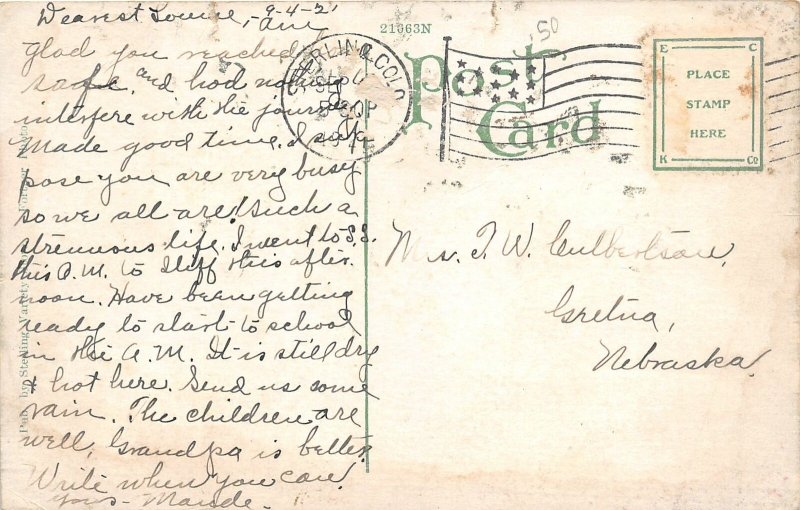 Dearest Louise, 9-4-2
Am
glad you reached
safe, and had nothing
interfere with the journey.
Made good time. I sup
pose you are very busy
so we all are! Such a
strennous life. I went to S.S.
this A.M. to Iliff this after
noon. Have been getting
ready to start to school
in the A.M. It is still dry
& hot here. Send us some
rain. The children are
well, Grandpa is better.
Write when you can.
Yours - Maude.
21663N
50
Post
Card
STERLING, COLO.
SEP
PLACE
STAMP
HERE
E C
K Co
Mrs. T. W. Culbertson,
Gretna,
Nebraska.
Pub. by Sterling Variety